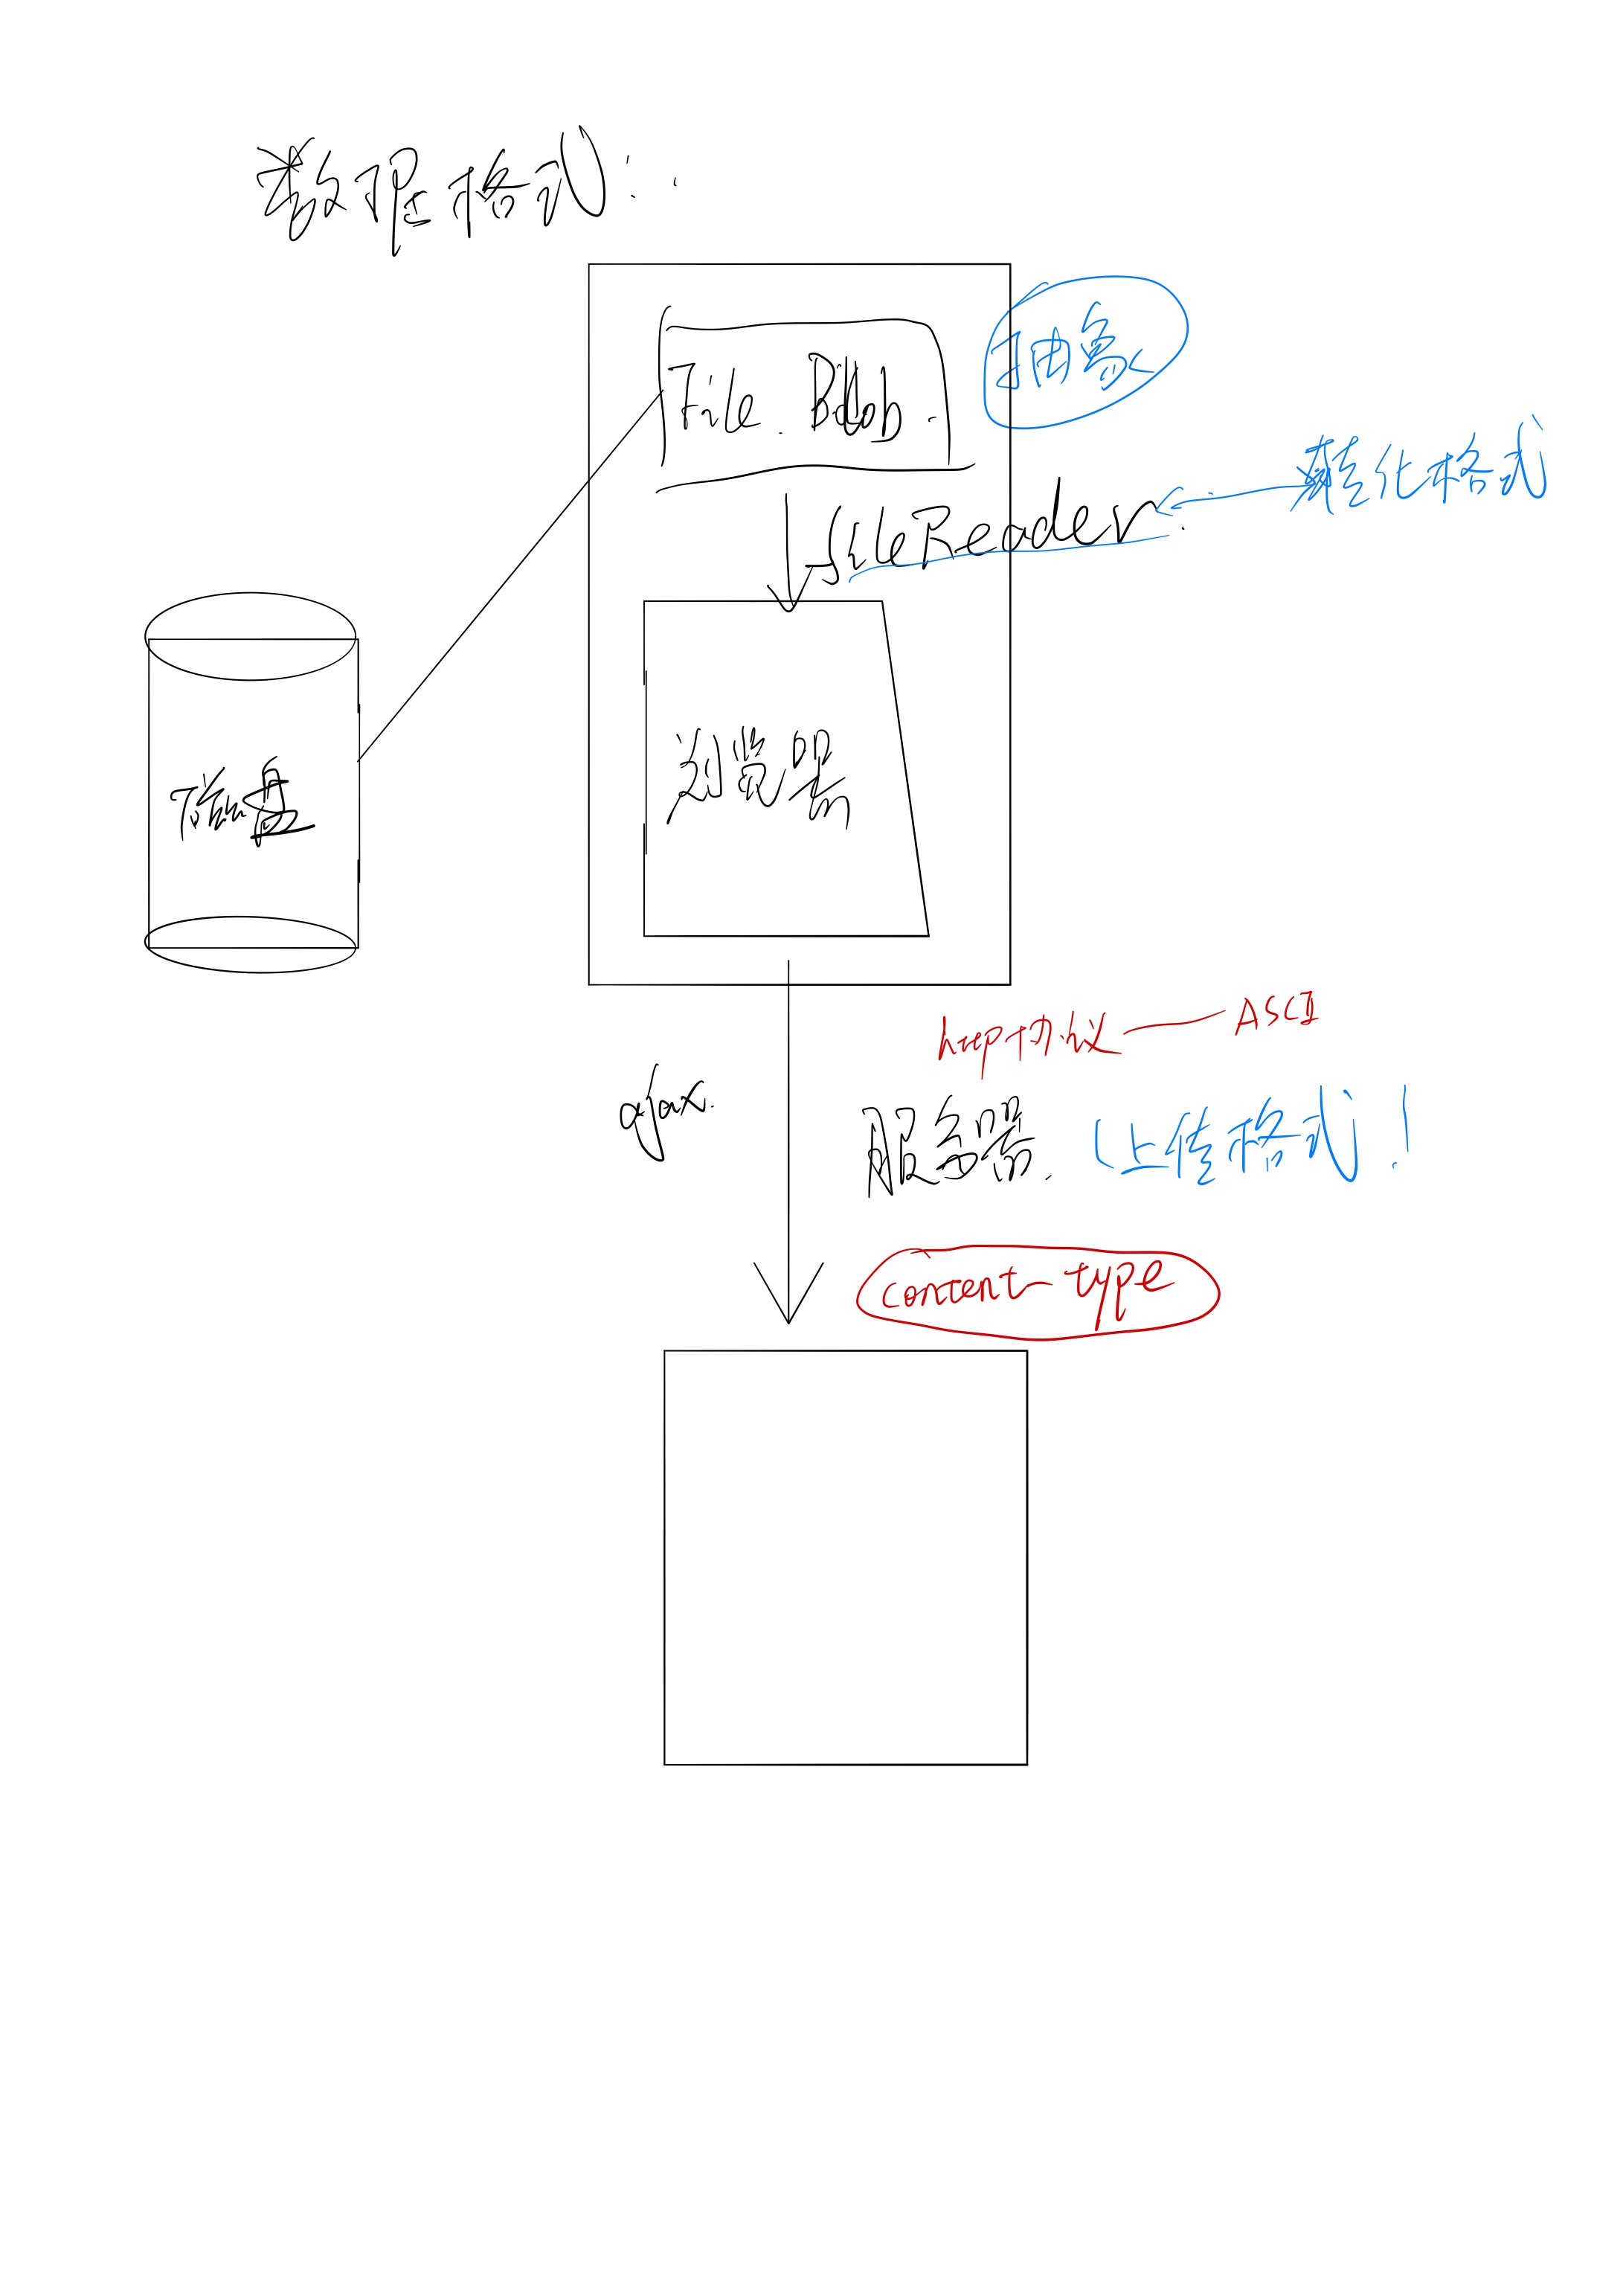 数据格式:
File. Blob.
抽象
FileReader.
转化格式
磁盘
浏览器
http协议
ASCII
ajax.
服务器.
(上传格式!
content-type